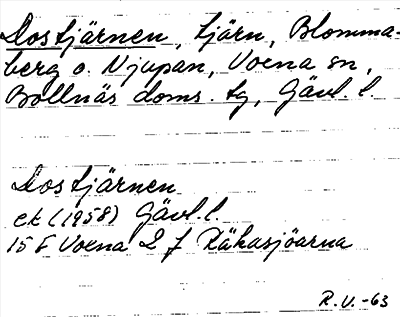 Lostjärnen, tjärn, Blomma-
berg o. Njupan, Voxna sn,
Bollnäs doms. tg, Gävl. l.
Lostjärnen
ek (1958) Gävl. l.
15 F Voxna 2 f Råhasjöarna
R.V.-63